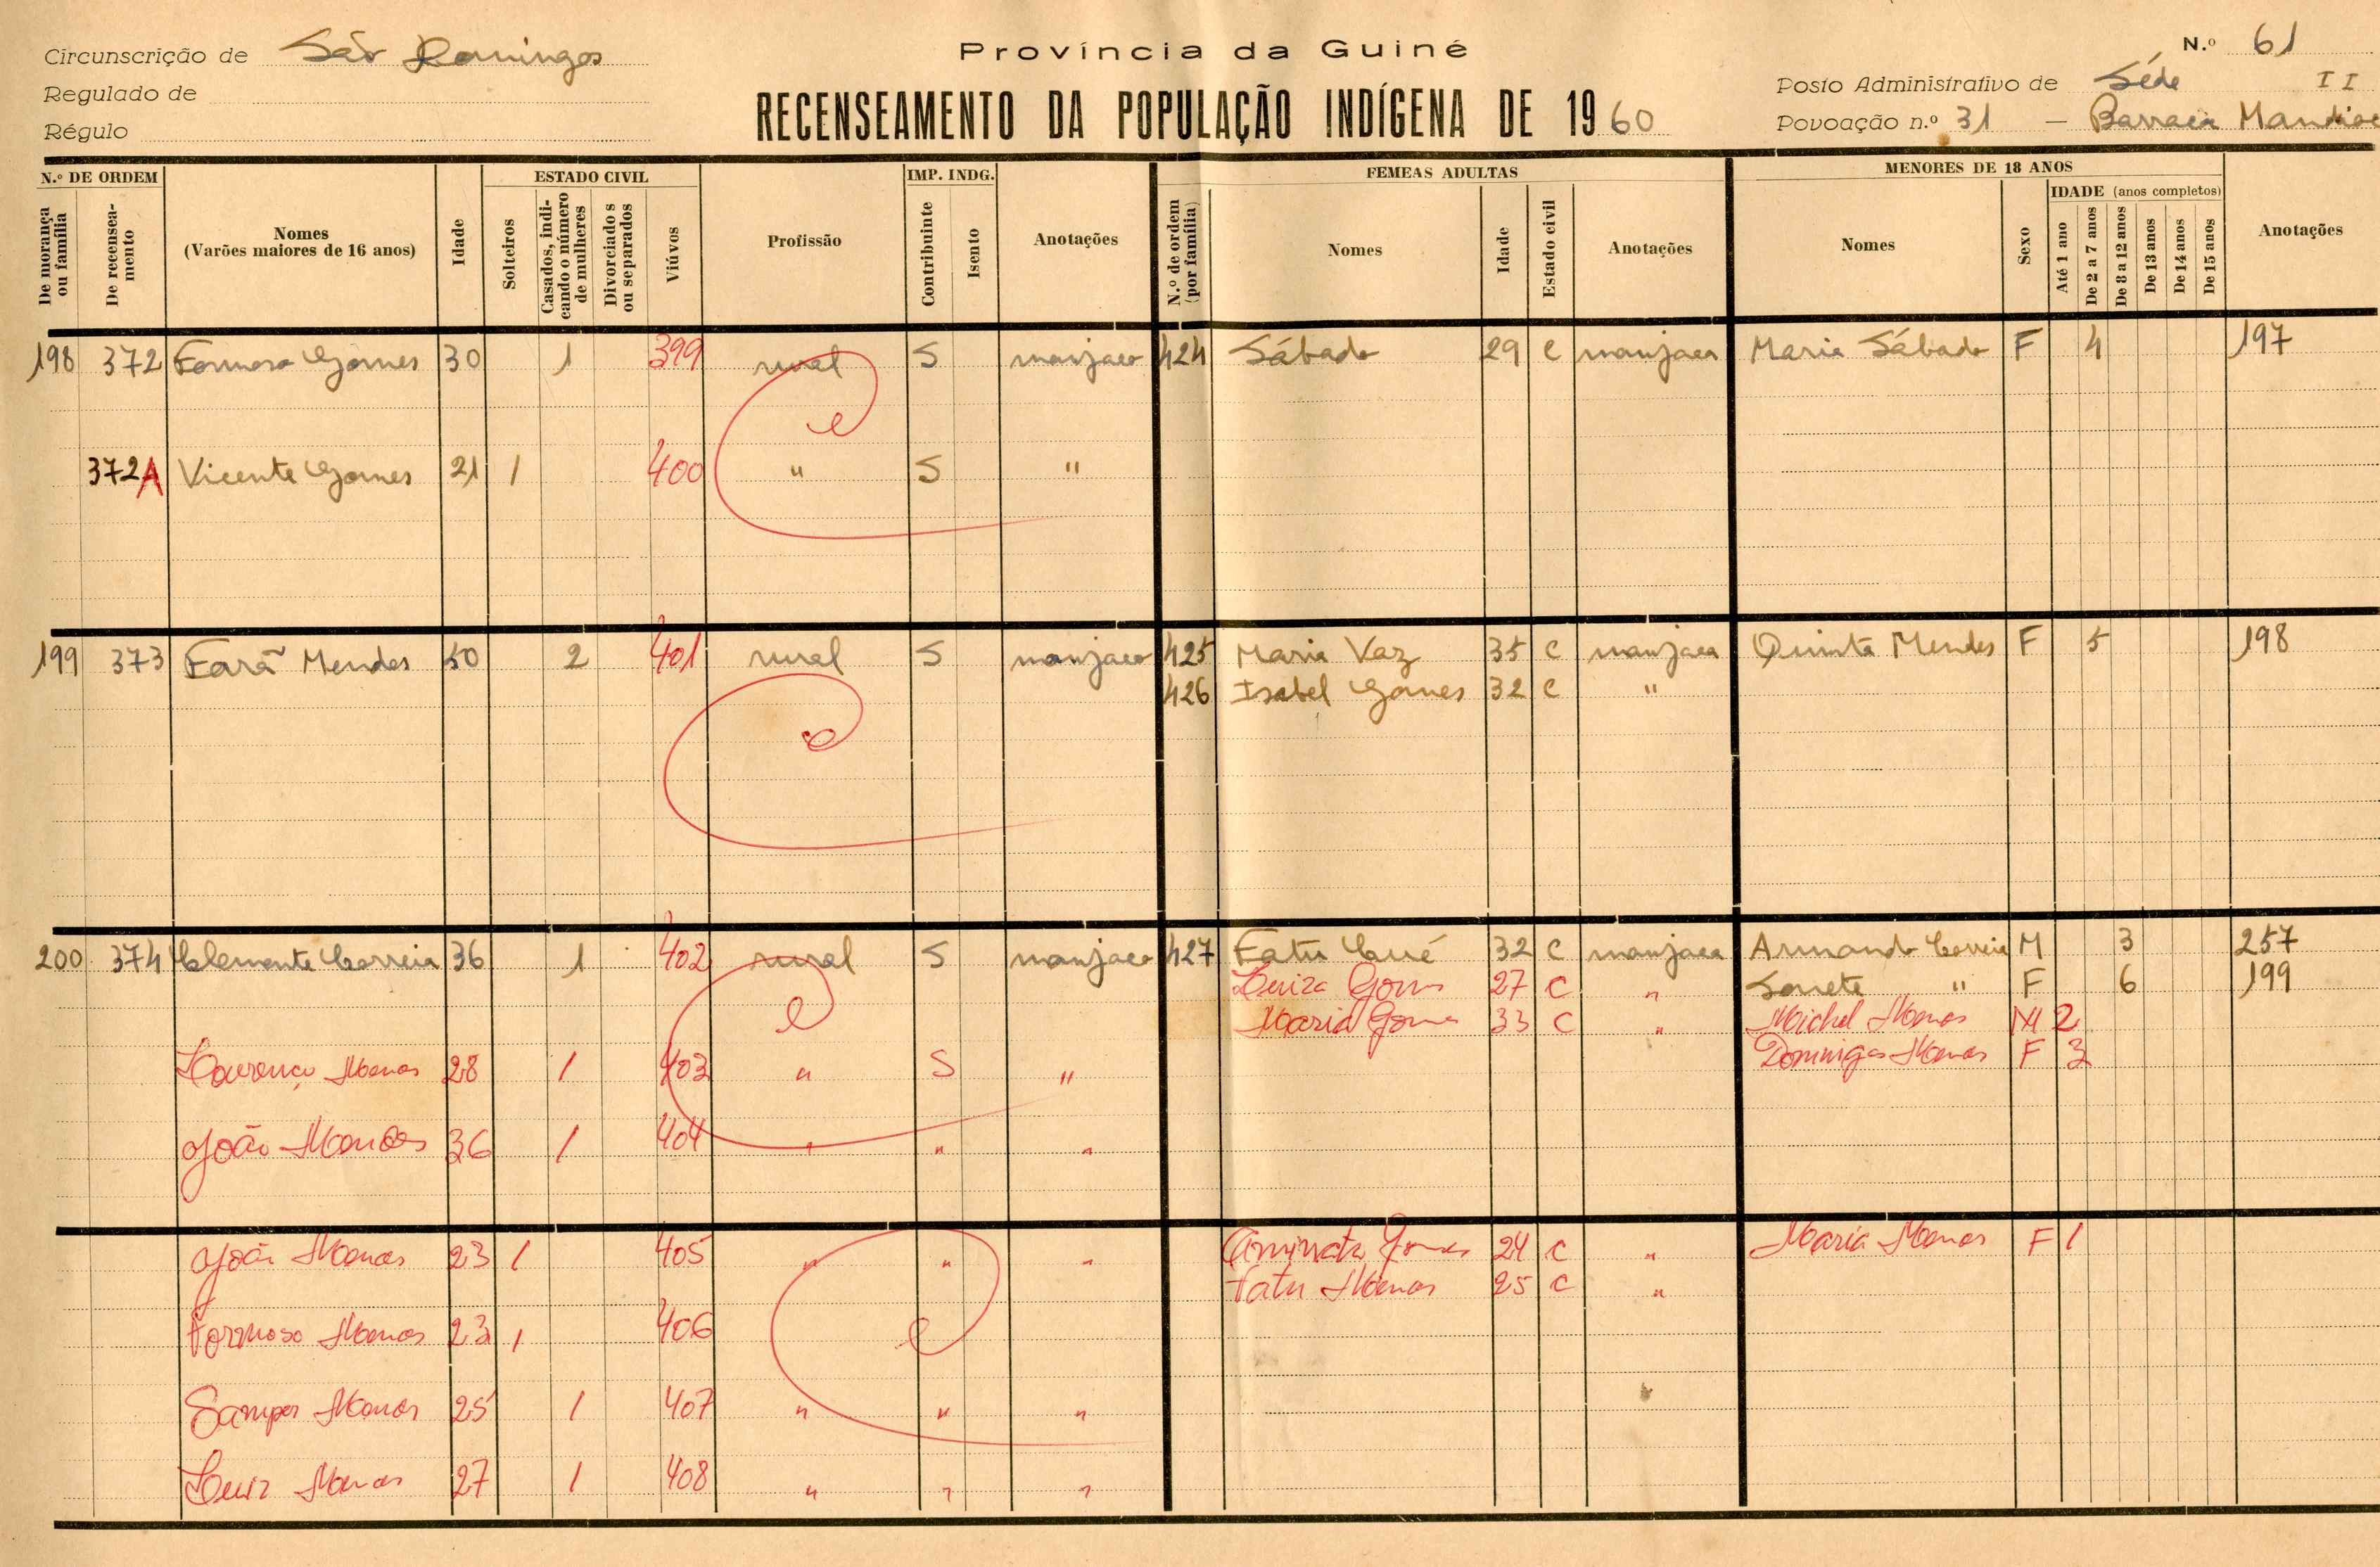 Província da Guiné
RECENSEAMENTO DA POPULAÇÃO INDÍGENA DE 1960
Circunscrição de São Domingos
Regulado de
Régulo
N.º 61
Posto Administrativo de Séde II
Povoação n.º 31 — Barraca
N.º DE ORDEM
De morança ou família
De recenseamento
Nomes
(Varões maiores de 16 anos)
Idade
ESTADO CIVIL
Solteiros
Casados, indicando o número de mulheres
Divorciados ou separados
Viúvos
Profissão
IMP. INDG.
Contribuinte
Isento
Anotações
FEMEAS ADULTAS
N.º de ordem (por família)
Nomes
Idade
Estado civil
Anotações
MENORES DE 18 ANOS
Nomes
Sexo
IDADE (anos completos)
Até 1 ano
De 2 a 7 anos
De 8 a 12 anos
De 13 anos
De 14 anos
De 15 anos
Anotações
198 372 Formoso Gomes 30 1 399 rural S manjaco 424 Sábado 29 C manjaca Maria Sábado F 4 197
372A Vicente Gomes 21 1 400 " S "
199 373 Fará Mendes 50 2 401 rural S manjaco 425 Maria Vaz 35 C manjaca Quinta Mendes F 5 198
426 Isabel Gomes 32 C "
200 374 Clemente Correia 36 1 402 rural S manjaco 427 Fatu 32 C manjaca Armando Correia M 3 257
Luiza Gomes 27 C " F 6 199
Maria Gomes 33 C " Michel Mendes M 2
Lourenço Mendes 28 1 403 " S " Domingas Mendes F 3
João Mendes 36 1 404 " " "
João Mendes 23 1 405 " " " Aminata Gomes 24 C " Maria Mendes F 1
Fatu Mendes 25 C "
Formoso Mendes 23 1 406
Mendes 25 1 407 " " "
Luiz Mendes 27 1 408 " " "